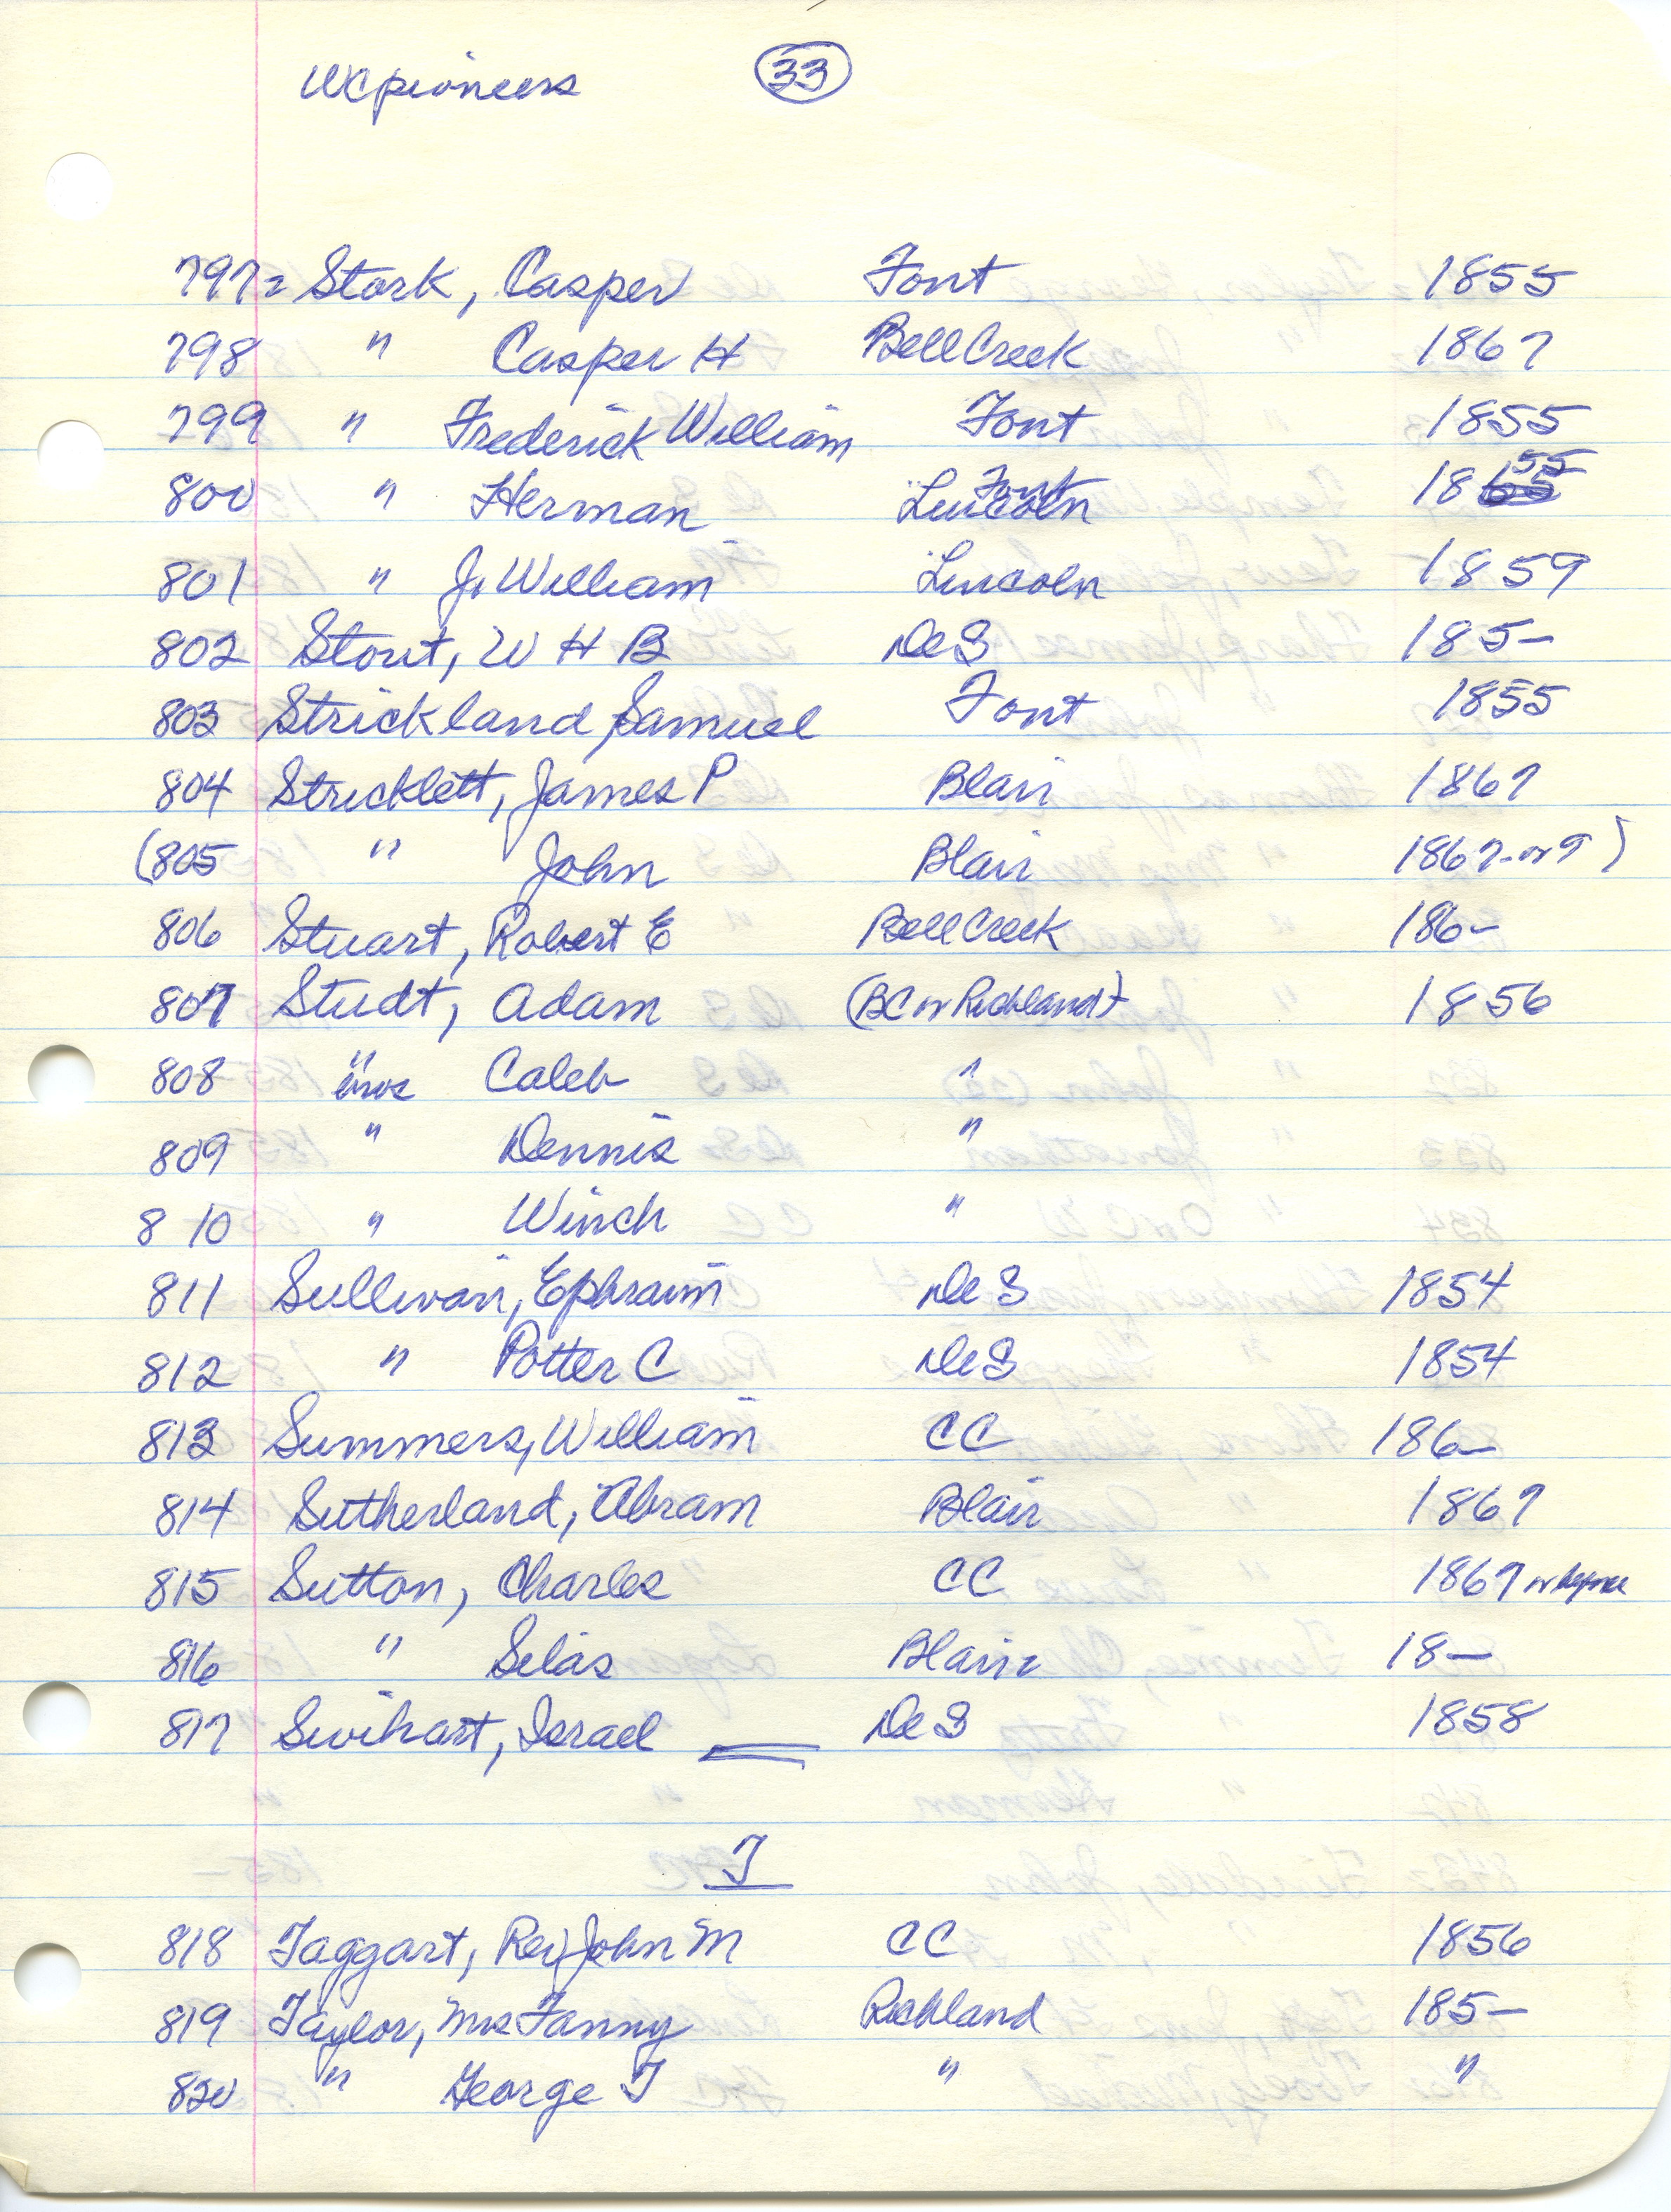 WCpioneers 33
797= Stork, Casper Font 1855
798 " Casper H Bell Creek 1867
799 " Frederick William Font 1855
800 " Herman Font Lincoln 1855
801 " J. William Lincoln 1859
802 Stout, W H B De S 185-
803 Strickland, Samuel Font 1855
804 Stricklett, James P Blair 1867
(805 " John Blair 1867- or 9)
806 Stuart, Robert E Bell Creek 186-
807 Studt, Adam (BC or Richland) 1856
808 " Caleb "
809 " Dennis "
810 " Winch "
811 Sullivan, Ephraim De S 1854
812 " Potter C De S 1854
813 Summers, William CC 186-
814 Sutherland, Abram Blair 1867
815 Sutton, Charles CC 1867 or
816 " Silas Blair 18-
817 Swihart, Israel De S 1858
T
818 Taggart, Rev John M CC 1856
819 Taylor, Mrs Fanny Richland 185-
820 " George T " "